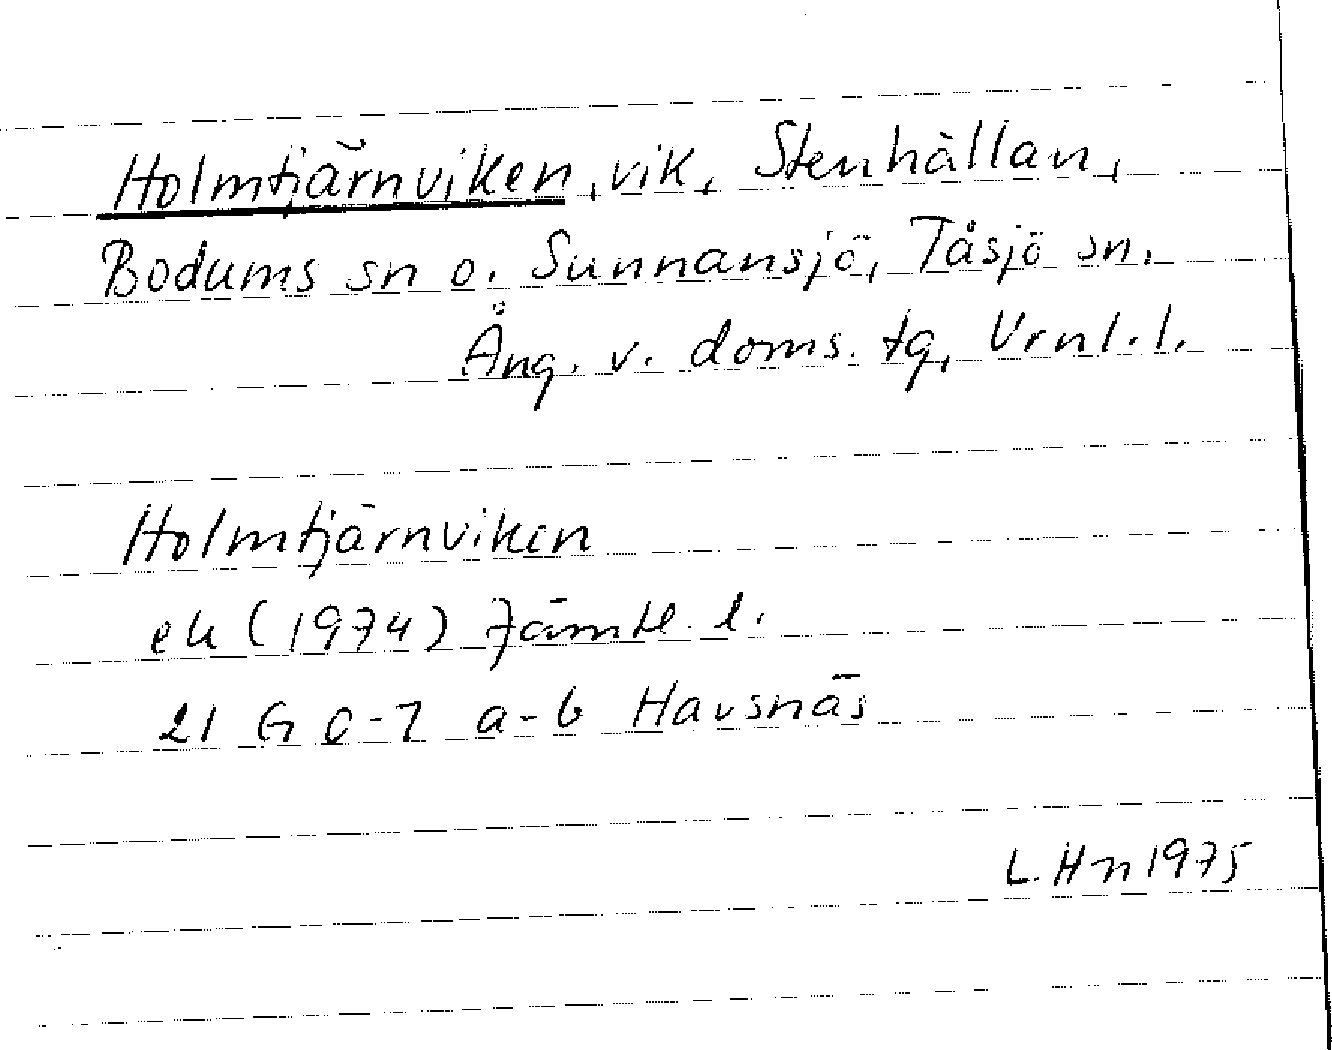 Holmtjärnviken, vik, Stenhällan,
Bodums sn o. Sunnansjö, Tåsjö sn.
Ång. v. doms. tg, Vrnl. l.
Holmtjärnviken
ek (1974) Jämtl. l.
21 G 0-7 a-b Havsnäs
L. Hn 1975